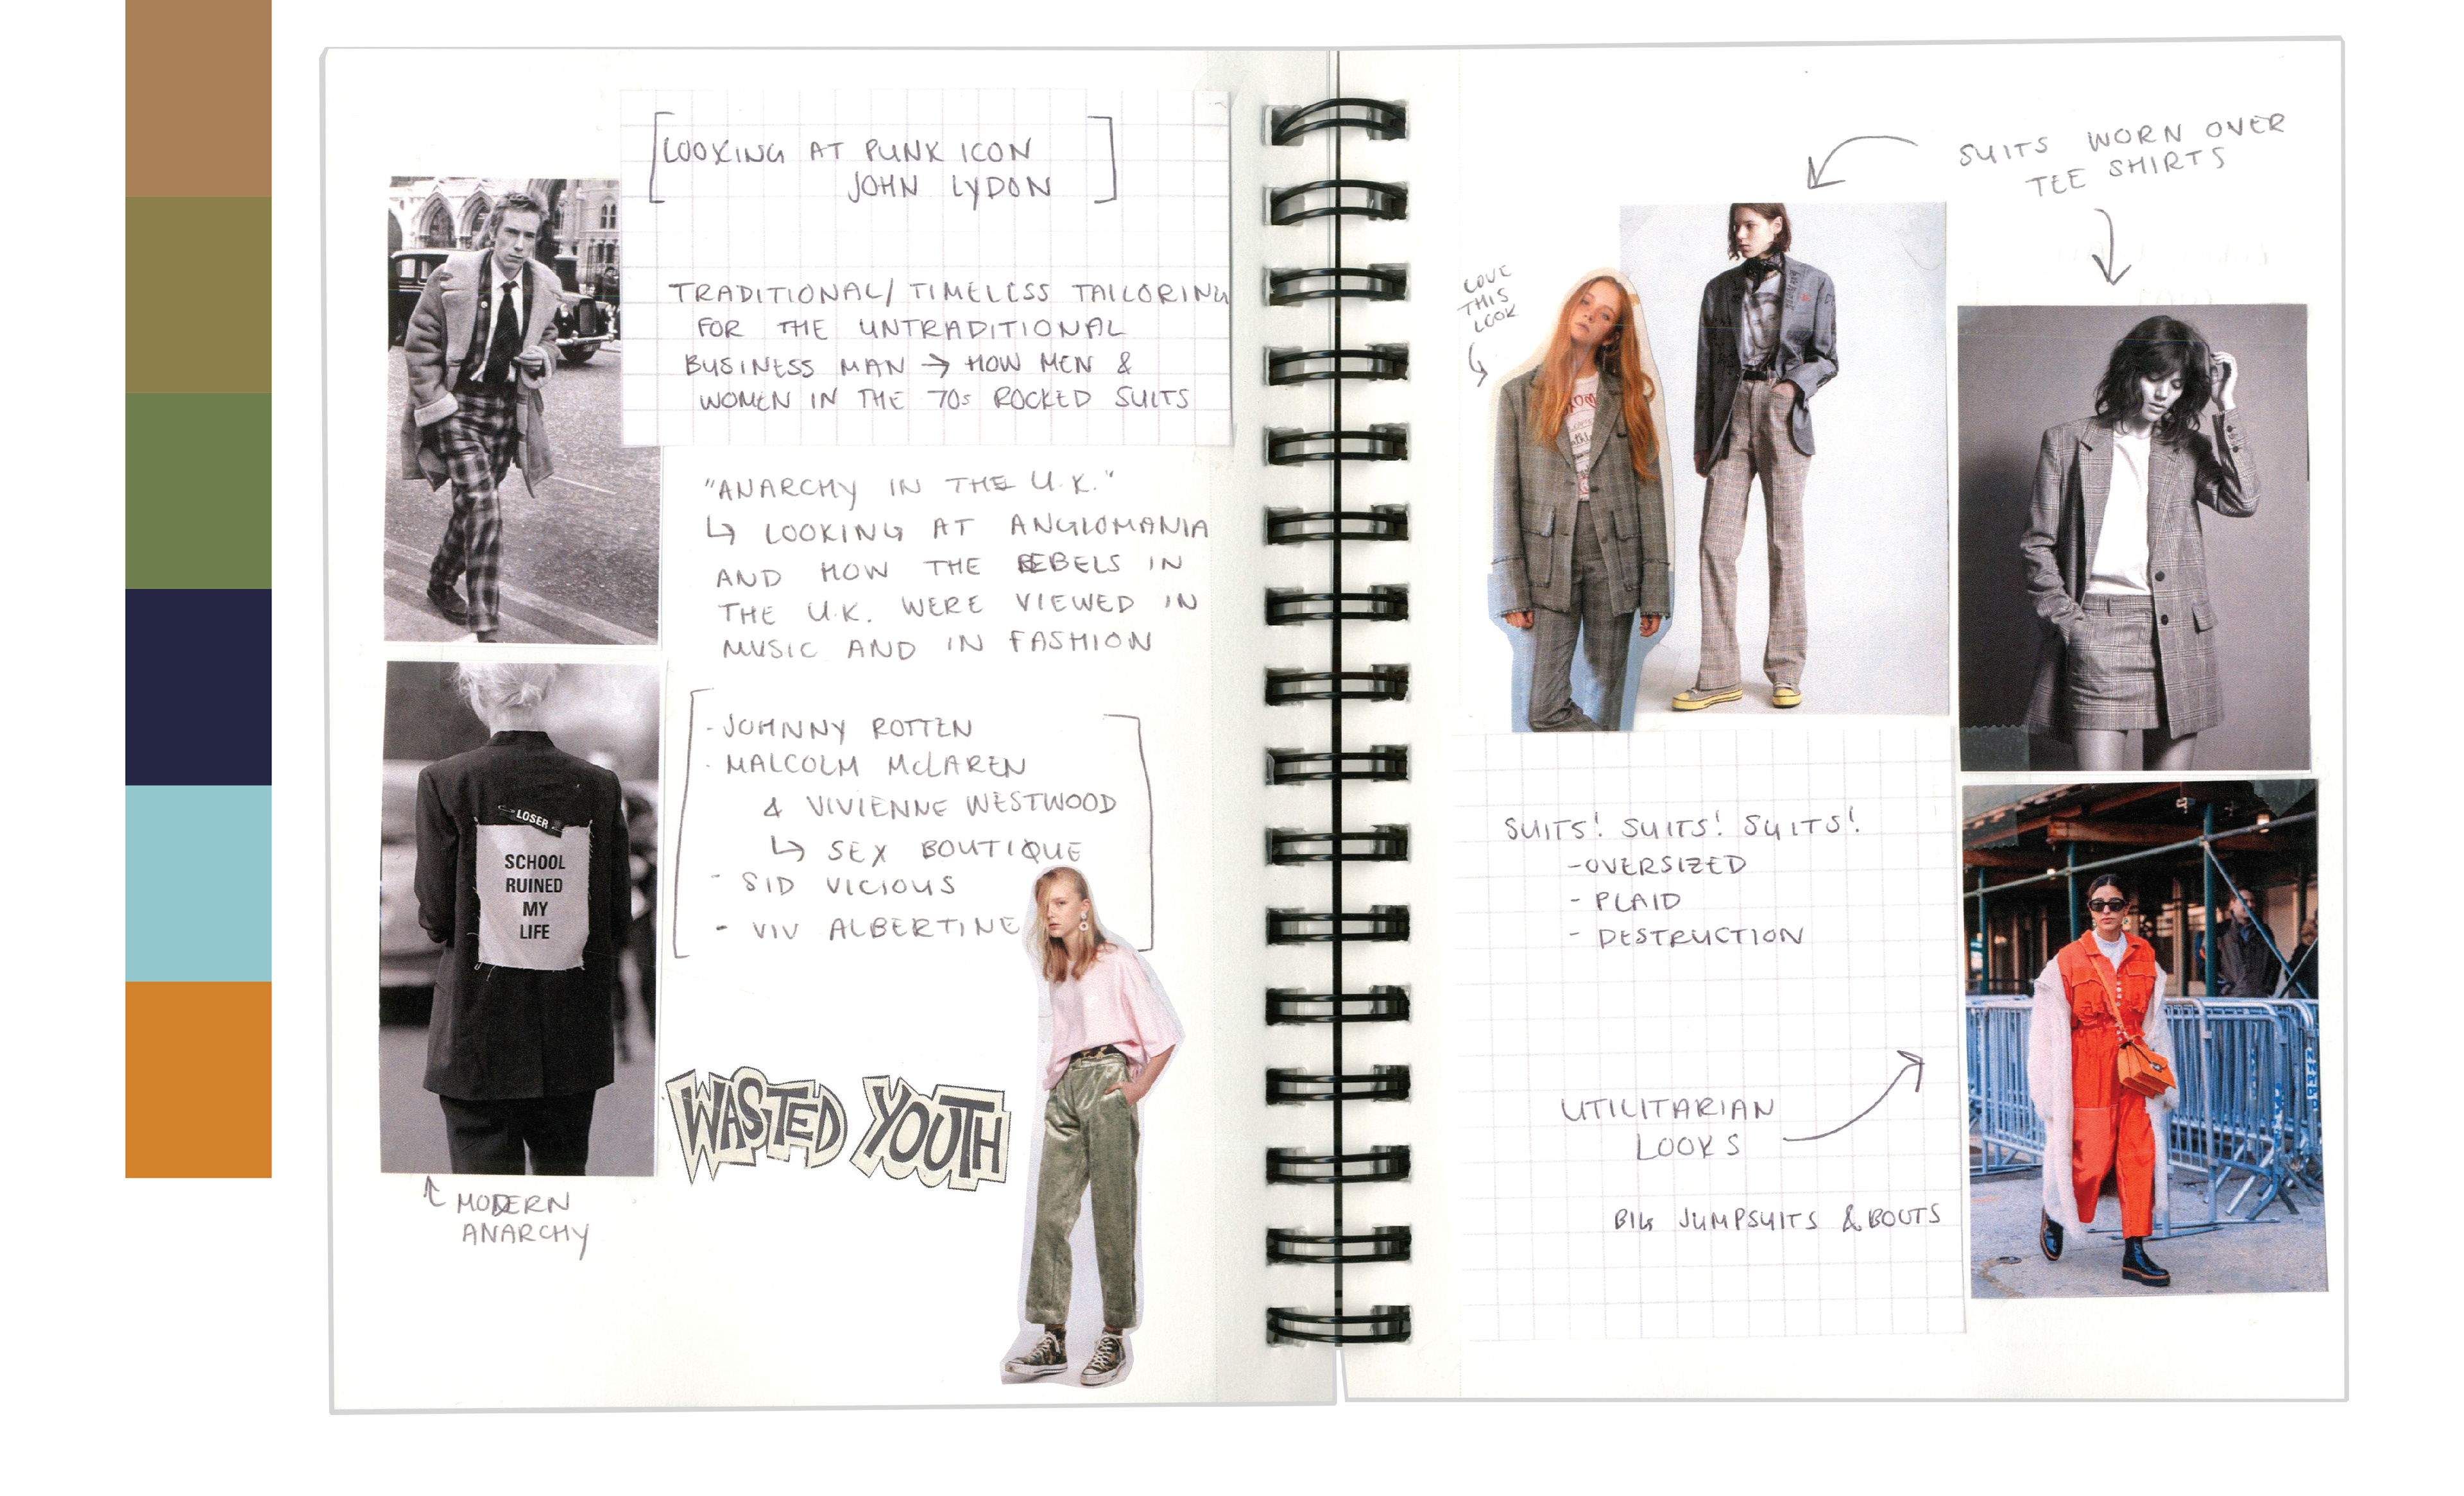 [LOOKING AT PUNK ICON
JOHN LYDON]
TRADITIONAL/ TIMELESS TAILORING
FOR THE UNTRADITIONAL
BUSINESS MAN → HOW MEN &
WOMEN IN THE 70s ROCKED SUITS
"ANARCHY IN THE U.K."
↳ LOOKING AT ANGLOMANIA
AND HOW THE REBELS IN
THE U.K. WERE VIEWED IN
MUSIC AND IN FASHION
- JOHNNY ROTTEN
- MALCOLM McLAREN
& VIVIENNE WESTWOOD
↳ SEX BOUTIQUE
- SID VICIOUS
- VIV ALBERTINE
LOSER
SCHOOL
RUINED
MY
LIFE
MODERN
ANARCHY
WASTED YOUTH
SUITS WORN OVER
TEE SHIRTS
LOVE
THIS
LOOK
SUITS! SUITS! SUITS!
-OVERSIZED
- PLAID
- DESTRUCTION
UTILITARIAN
LOOKS
BIG JUMPSUITS & BOOTS